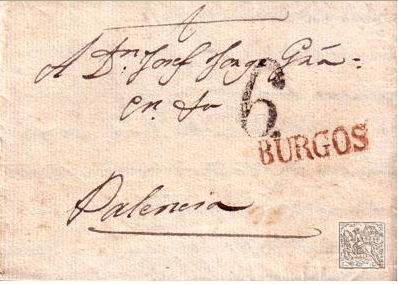 A Dn. Josef Jorge
en
6
BURGOS
Palencia